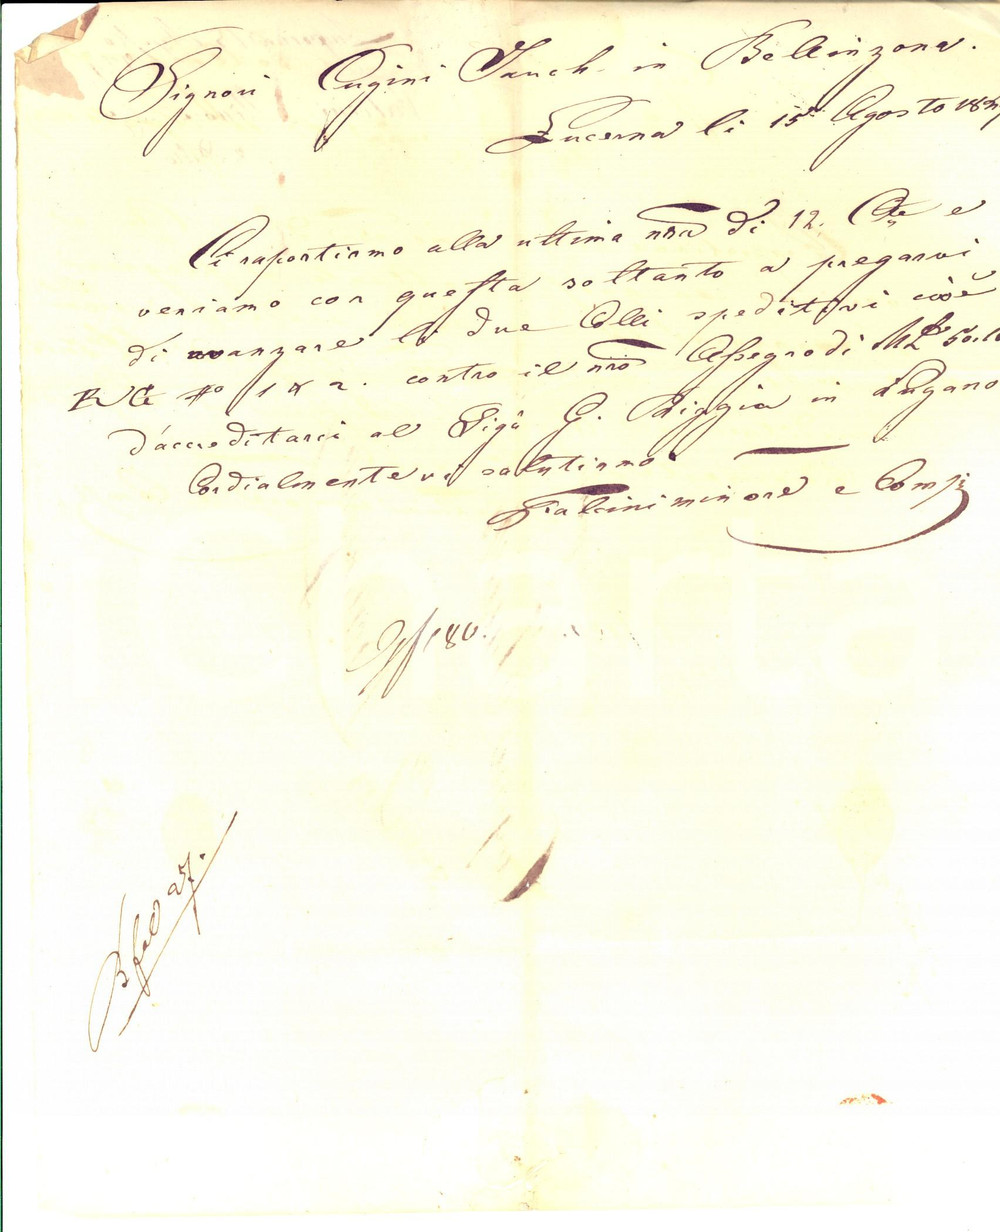 Signori Cugini Jauch in Bellinzona.
Lucerna li 15 Agosto 183
Ci raportiamo alla ultima nra di 12. Cte e
veniamo con questa soltanto a pregarvi
di avanzare li due Colli speditivi cioè
No 1 & 2. contro il nro Assegno di 50.10
d'accreditarci al Sigr G. Riggia in Lugano
Cordialmente vi salutiamo.
Falcini minore e Comp
180.
27.